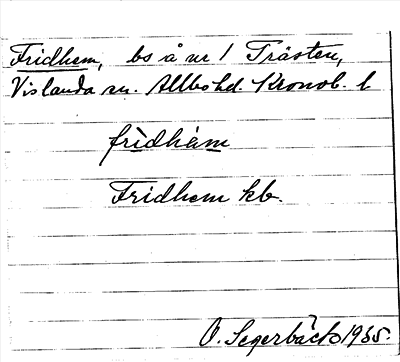 Fridhem, bs å nr 1 Trästen,
Vislanda sn. Allbo hd. Kronob. l
frìdhèm
Fridhem kb.
O. Segerbäck 1935.